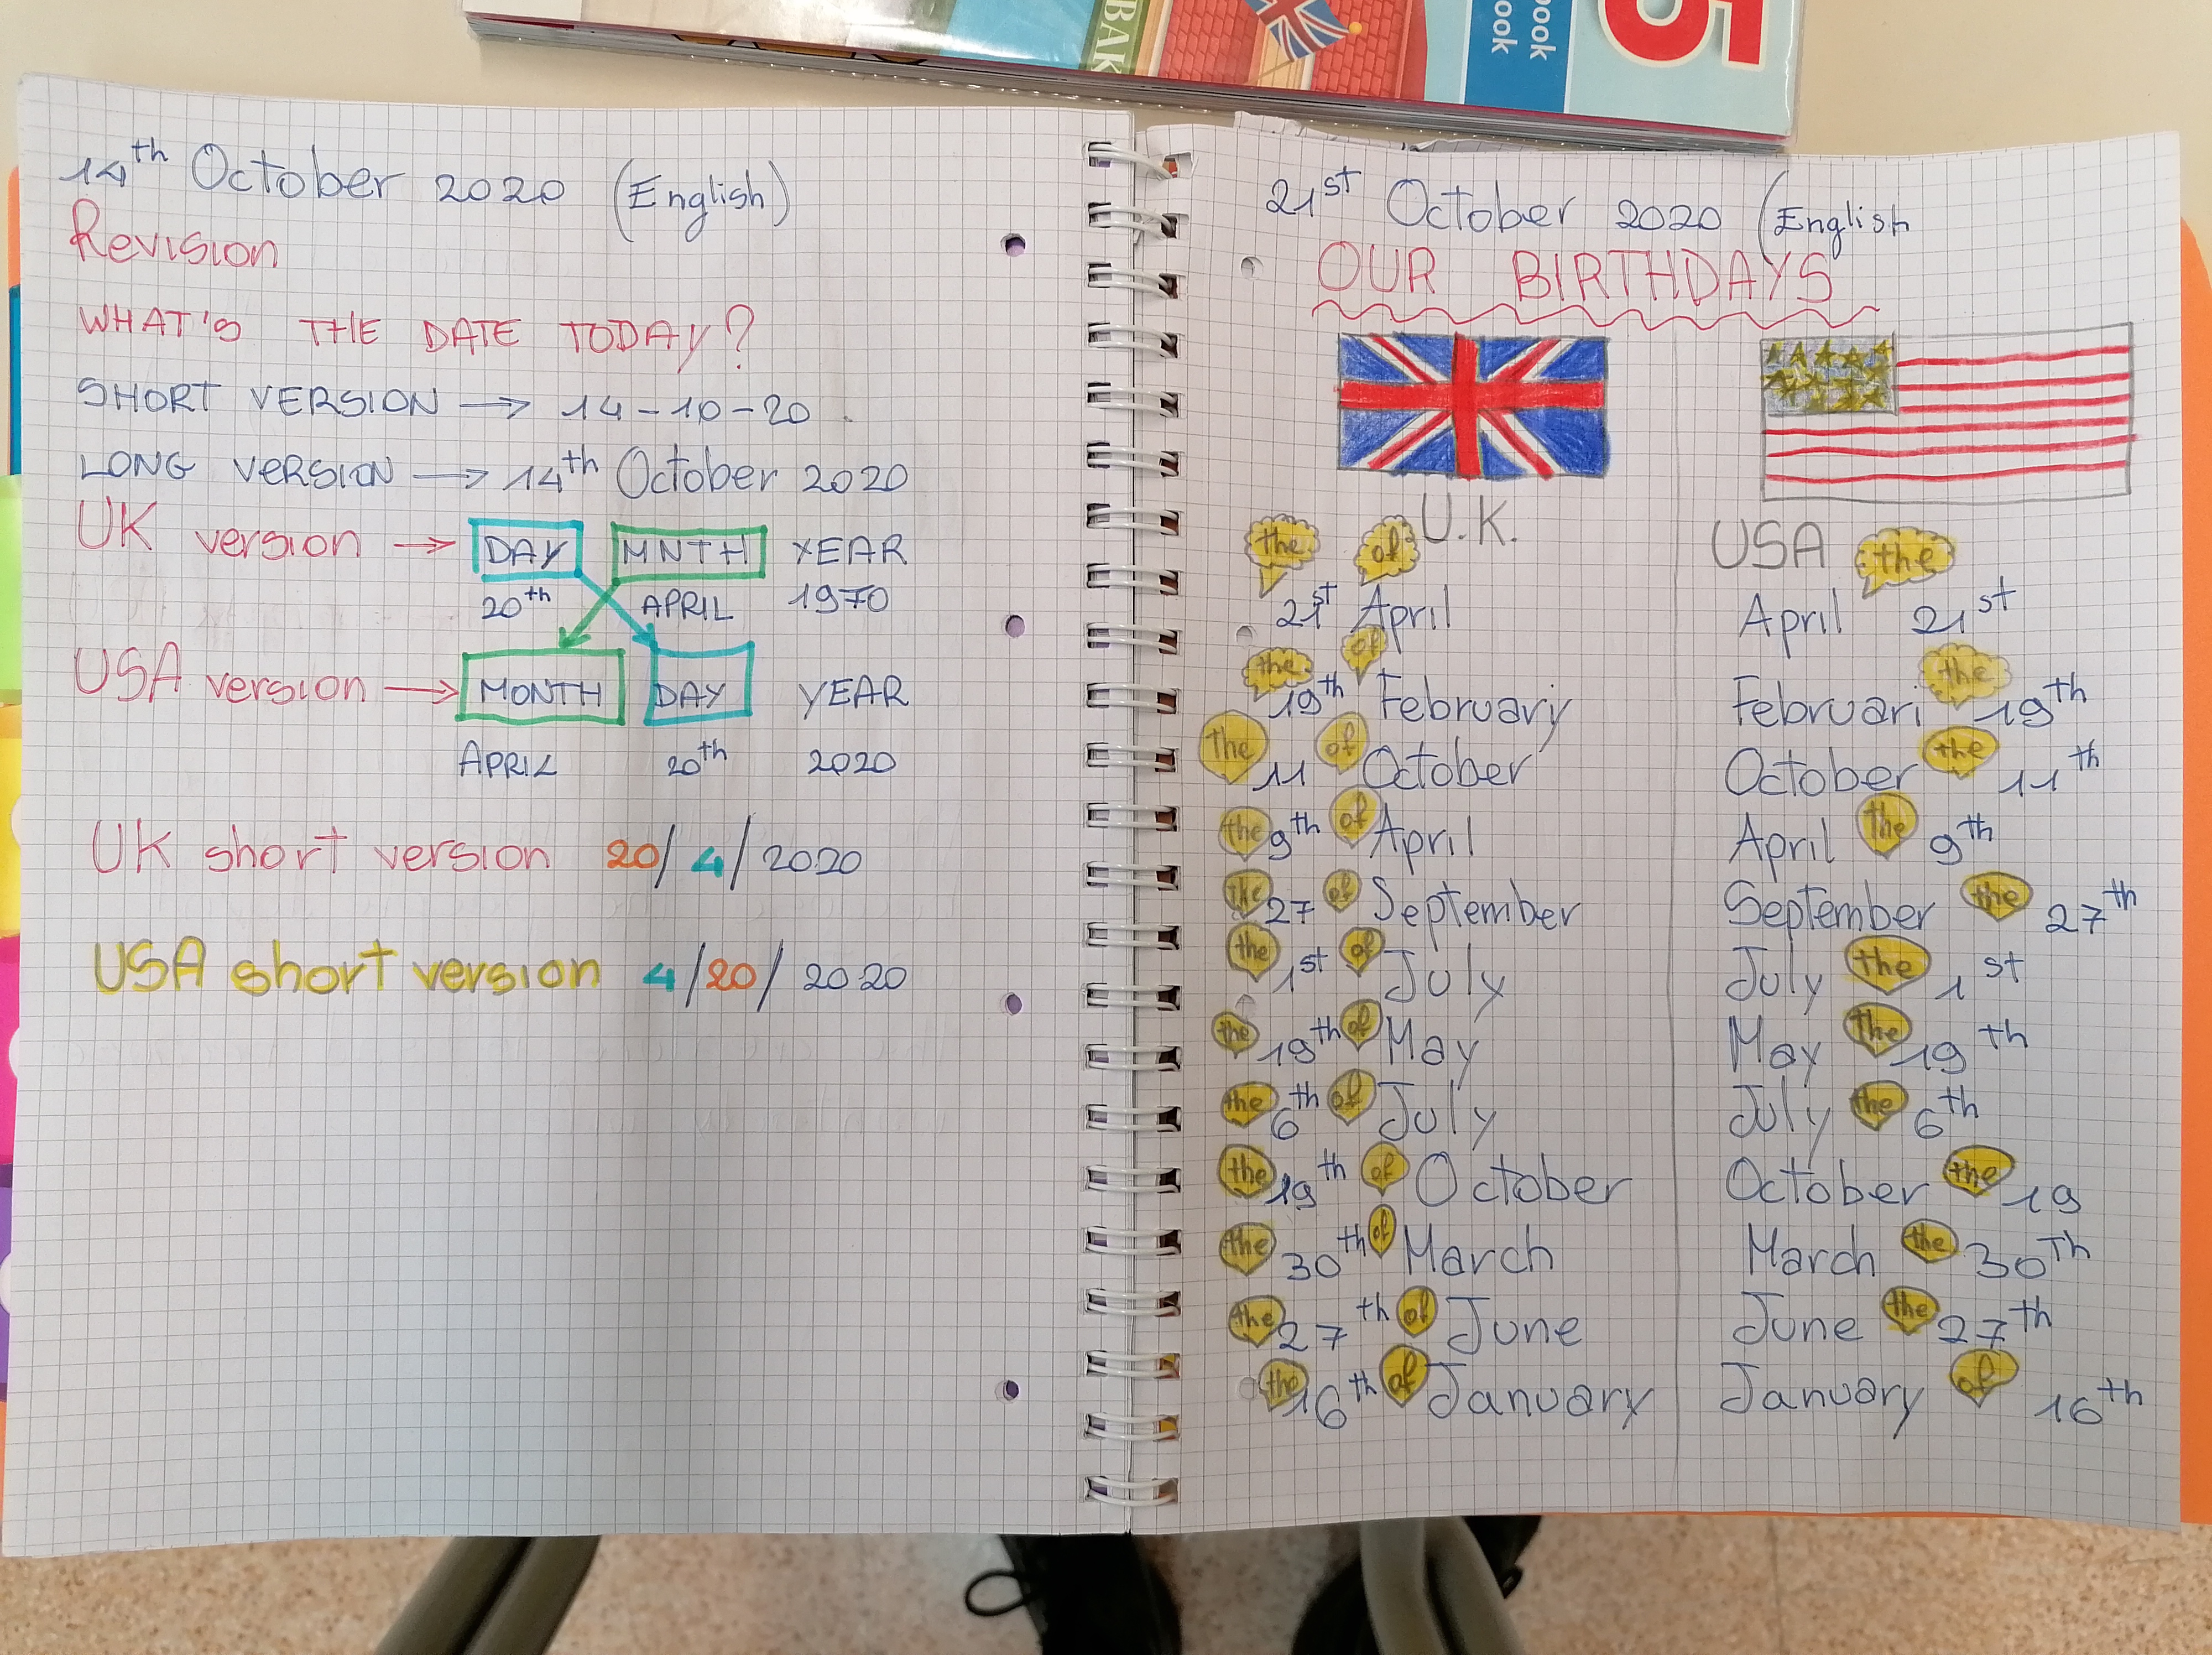 BAK
book
book
5
14th October 2020 (English)
Revision
WHAT'S THE DATE TODAY?
SHORT VERSION → 14-10-20.
LONG VERSION → 14th October 2020
UK version → DAY MNTH YEAR
20th APRIL 1970
USA version → MONTH DAY YEAR
APRIL 20th 2020
UK short version 20/4/2020
USA short version 4/20/2020
21st October 2020 (English
OUR BIRTHDAYS
U.K.
USA
the 21st of April
April the 21st
the 19th of February
Februari the 19th
the 11 of October
October the 11th
the 9th of April
April the 9th
the 27 of September
September the 27th
the 1st of July
July the 1st
the 19th of May
May the 19th
the 6th of July
July the 6th
the 19th of October
October the 19
the 30th of March
March the 30Th
the 27th of June
June the 27th
the 16th of January
January of 16th